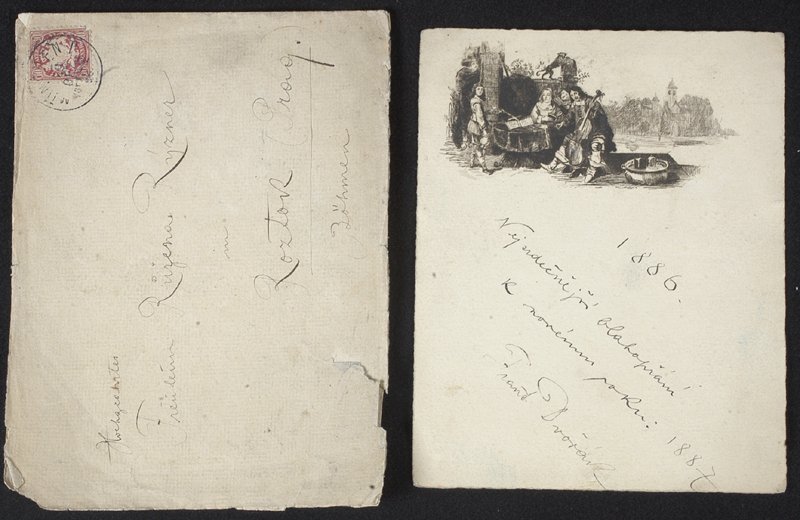 Hochgeehrtes
Fräulein Růžena Rýzner
in
Roztok Prag.
Böhmen
1886.
Nejsrdečnější blahopřání
k novému roku. 1887
Frant Dvořák